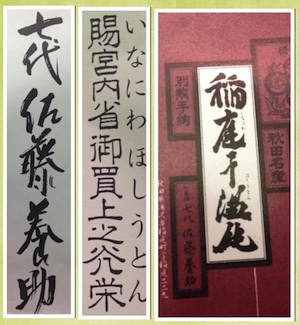 七代 佐藤養助
いなにわほしうとん
賜宮内省御買上之光栄
秋田名産
稲庭干温飩
別製手綯
七代 佐藤養助